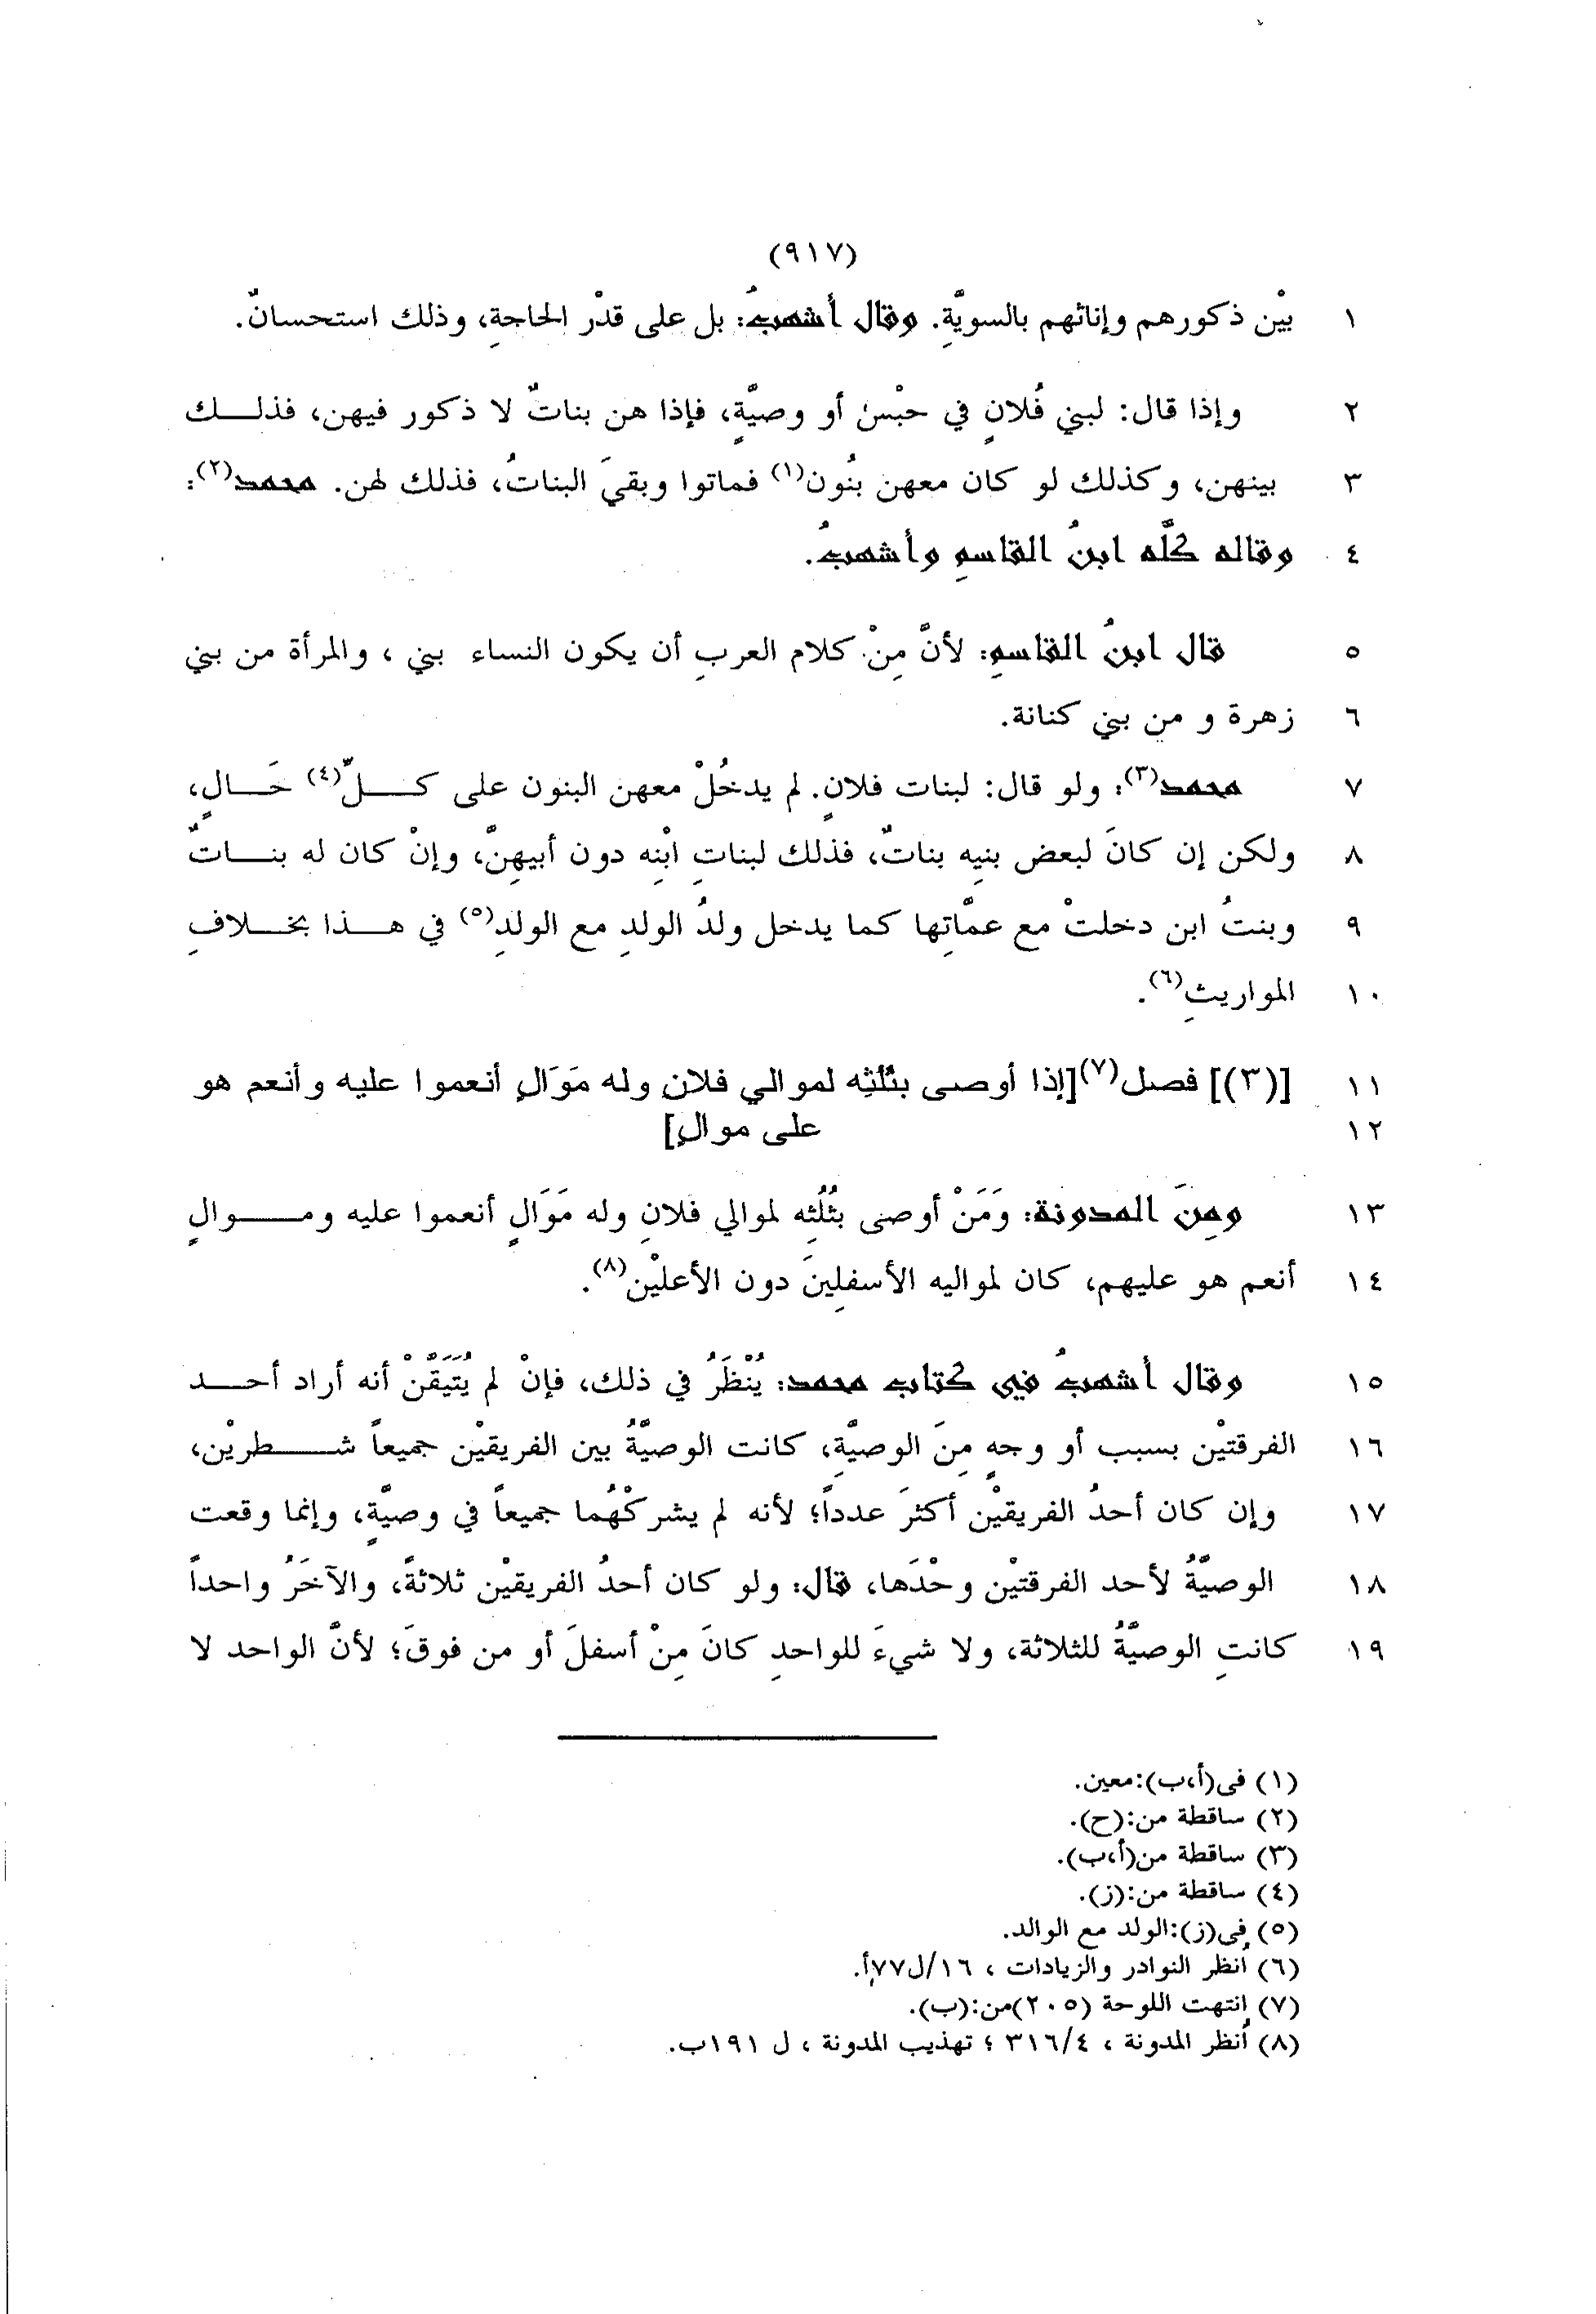 (٩١٧)
١ بيْن ذكورهم وإناثهم بالسويَّةِ. وقال أشهبُ: بل على قدْر الحاجةِ، وذلك استحسانٌ.
٢ وإذا قال: لبني فُلانٍ في حبْسٍ أو وصيَّةٍ، فإذا هن بناتٌ لا ذكور فيهن، فذلك
٣ بينهن، وكذلك لو كان معهن بنُون(١) فماتوا وبقيَ البناتُ، فذلك لهن. محمد(٢):
٤ وقاله كلَّه ابنُ القاسمِ وأشهبُ.
٥ قال ابنُ القاسمِ: لأنَّ مِنْ كلام العربِ أن يكون النساء بني ، والمرأة من بني
٦ زهرة و من بني كنانة.
٧ محمد(٣): ولو قال: لبنات فلانٍ. لم يدخُلْ معهن البنون على كلِّ(٤) حَالٍ،
٨ ولكن إن كانَ لبعض بنِيه بناتٌ، فذلك لبناتِ ابْنِه دون أبيهِنَّ، وإنْ كان له بناتٌ
٩ وبنتُ ابن دخلتْ مع عمَّاتِها كما يدخل ولدُ الولدِ مع الولدِ(٥) في هذا بخلافِ
١٠ المواريثِ(٦).
١١ [(٣)] فصل(٧)[إذا أوصى بثُلُثِه لموالي فلانٍ وله مَوَالٍ أنعموا عليه وأنعم هو
١٢ على موالٍ]
١٣ ومِنَ المدونة: وَمَنْ أوصى بثُلُثِه لموالي فلانِ وله مَوَالٍ أنعموا عليه وموالٍ
١٤ أنعم هو عليهم، كان لمواليه الأسفلِينَ دون الأعليْن(٨).
١٥ وقال أشهبُ في كتاب محمد: يُنْظَرُ في ذلك، فإنْ لم يُتَيَقَّنْ أنه أراد أحد
١٦ الفرقتيْن بسبب أو وجهٍ مِنَ الوصيَّةِ، كانت الوصيَّةُ بين الفريقيْن جميعاً شطريْن،
١٧ وإن كان أحدُ الفريقيْن أكثرَ عدداً؛ لأنه لم يشركْهُما جميعاً في وصيَّةٍ، وإنما وقعت
١٨ الوصيَّةُ لأحد الفرقتيْن وحْدَها، قال: ولو كان أحدُ الفريقيْن ثلاثةً، والآخَرُ واحداً
١٩ كانتِ الوصيَّةُ للثلاثة، ولا شيءَ للواحدِ كانَ مِنْ أسفلَ أو من فوقَ؛ لأنَّ الواحد لا
(١) فى(أ،ب):معين.
(٢) ساقطة من:(ح).
(٣) ساقطة من(أ،ب).
(٤) ساقطة من:(ز).
(٥) فى(ز):الولد مع الوالد.
(٦) أنظر النوادر والزيادات ، ١٦/ل٧٧أ.
(٧) إنتهت اللوحة (٢٠٥)من:(ب).
(٨) أنظر المدونة ، ٣١٦/٤ ؛ تهذيب المدونة ، ل ١٩١ب.